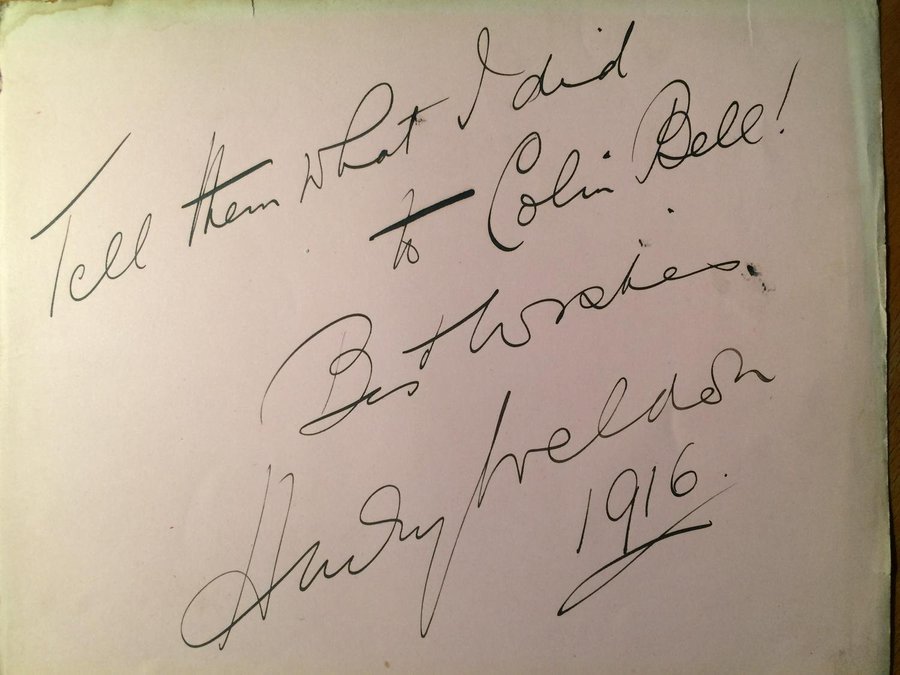 Tell them what I did
to Colin Bell!
Best Wishes.
Harry Weldon
1916.